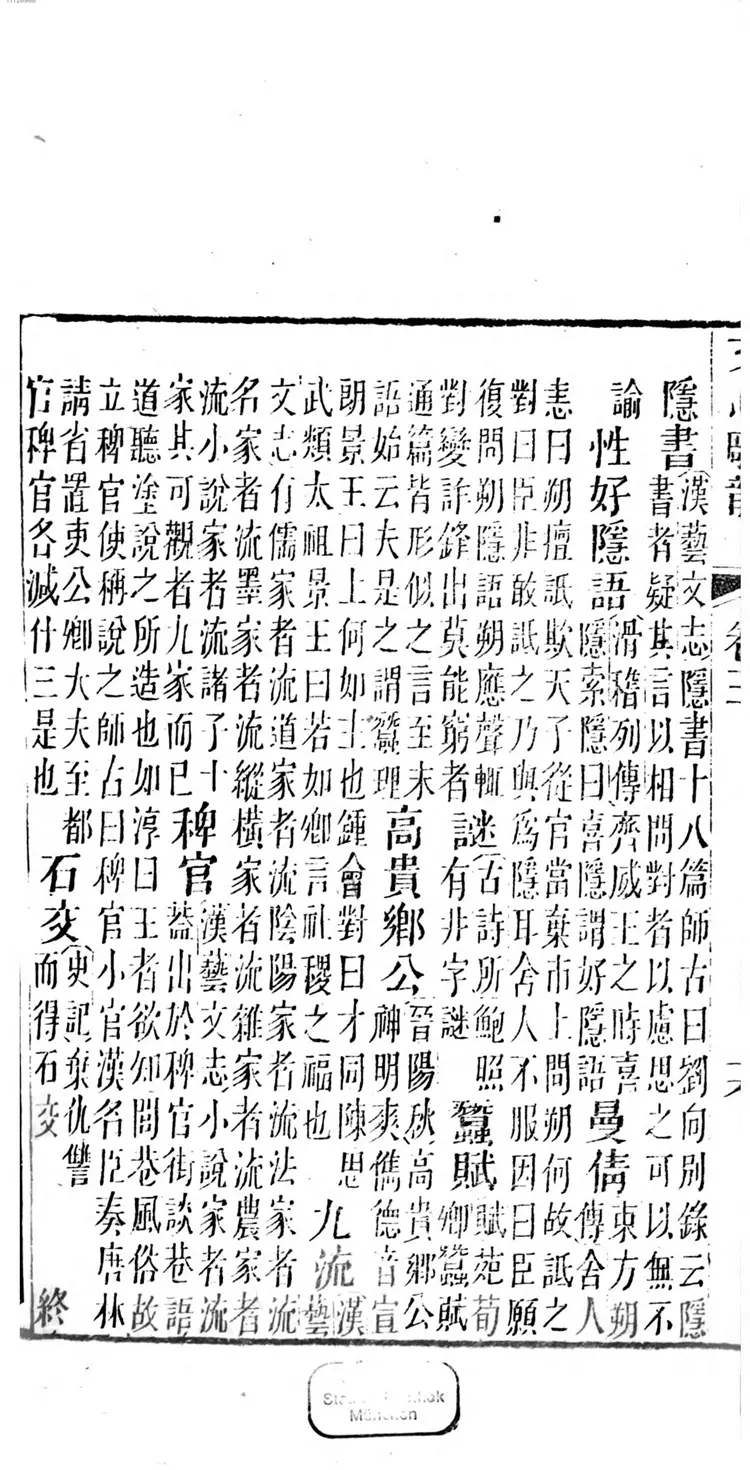 隱書
漢藝文志隱書十八篇師古曰劉向別錄云隱
書者疑其言以相問對者以慮思之可以無不
諭
性好隱語
滑稽列傳齊威王之時喜
隱索隱曰喜隱謂好隱語
曼倩
東方朔
傳舍人
恚曰朔擅詆欺天子從官當棄市上問朔何故詆之
對曰臣非敢詆之乃與爲隱耳舍人不服因曰臣願
復問朔隱語朔應聲輒
對變詐鋒出莫能窮者
謎
古詩所鮑照
有非字謎
蠶賦
賦苑荀
卿蠶賦
通篇皆形似之言至末
語始云夫是之謂蠶理
高貴鄉公
晉陽秋高貴鄉公
神明爽儁德音宣
朗景王曰上何如主也鍾會對曰才同陳思
武類太祖景王曰若如卿言社稷之福也
九流
漢
藝
文志有儒家者流道家者流陰陽家者流法家者流
名家者流墨家者流縱橫家者流雜家者流農家者
流小說家者流諸子十
家其可觀者九家而已
稗官
漢藝文志小說家者流
蓋出於稗官街談巷語
道聽塗說之所造也如淳曰王者欲知閭巷風俗故
立稗官使稱說之師古曰稗官小官漢名臣奏唐林
請省置吏公卿大夫至都
官稗官各減什三是也
石交
史記棄仇讐
而得石交
終
München